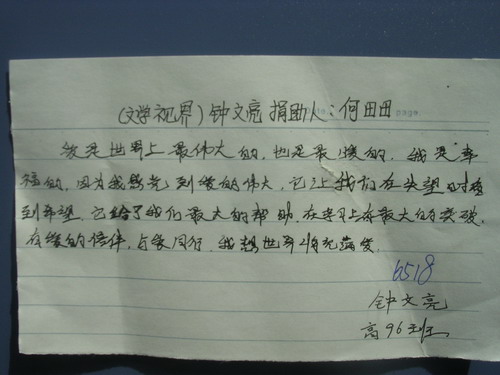 (文学视界) 钟文亮 捐助人:何田田
爱是世界上最伟大的,也是最 暖的,我是幸
福的,因为我感觉到爱的伟大,它让我们在失望时看
到希望,它给了我们最大的帮助,在学习上有最大的突破,
有爱的陪伴,与爱同行,我想世界将充满爱.
6518
钟文亮
高96班